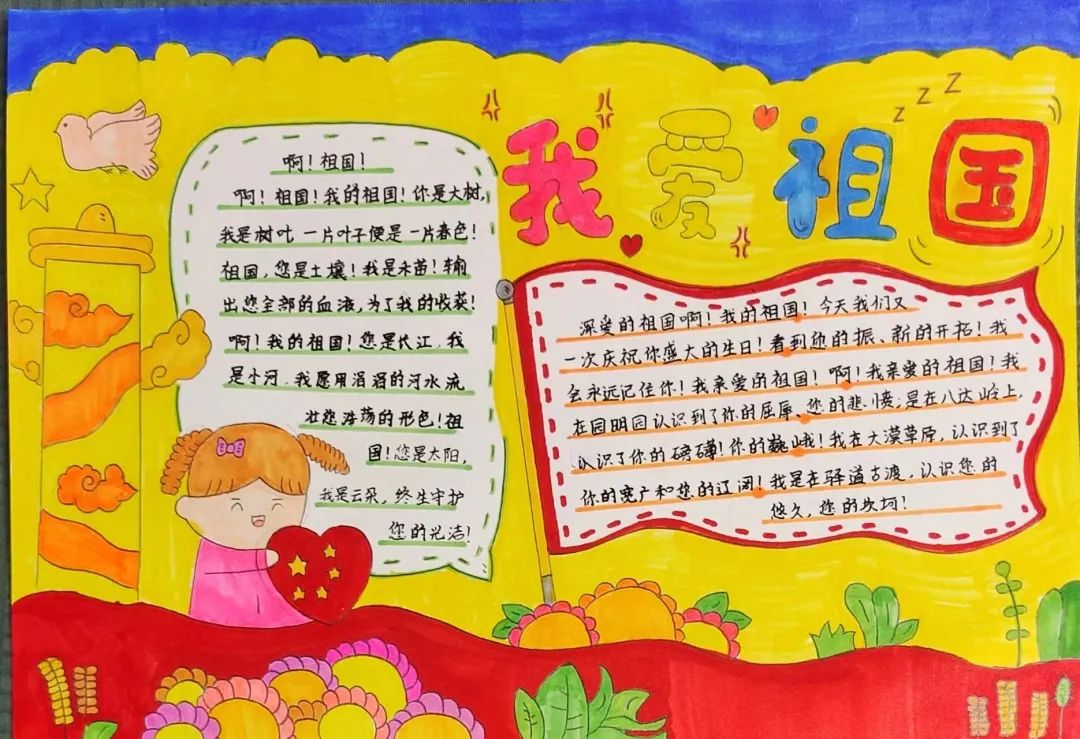 我爱祖国
z z z
啊！祖国！
啊！祖国！我的祖国！你是大树，
我是树叶 一片叶子便是一片春色！
祖国，您是土壤！我是禾苗！输
出您全部的血液，为了我的收获！
啊！我的祖国！您是长江，我
是小河，我愿用滔滔的河水流
壮您浩荡的形色！祖
国！您是太阳，
我是云朵，终生守护
您的光洁！
深爱的祖国啊！我的祖国！今天我们又
一次庆祝你盛大的生日！看到你的振、新的开拓！我
会永远记住你！我亲爱的祖国！啊！我亲爱的祖国！我
在园明园认识到了你的屈辱、您的悲愤；是在八达岭上，
认识了你的磅礴！你的巍峨！我在大漠草原，认识到了
你的宽广和您的辽阔！我是在驿道古渡，认识您的
悠久，您的坎坷！